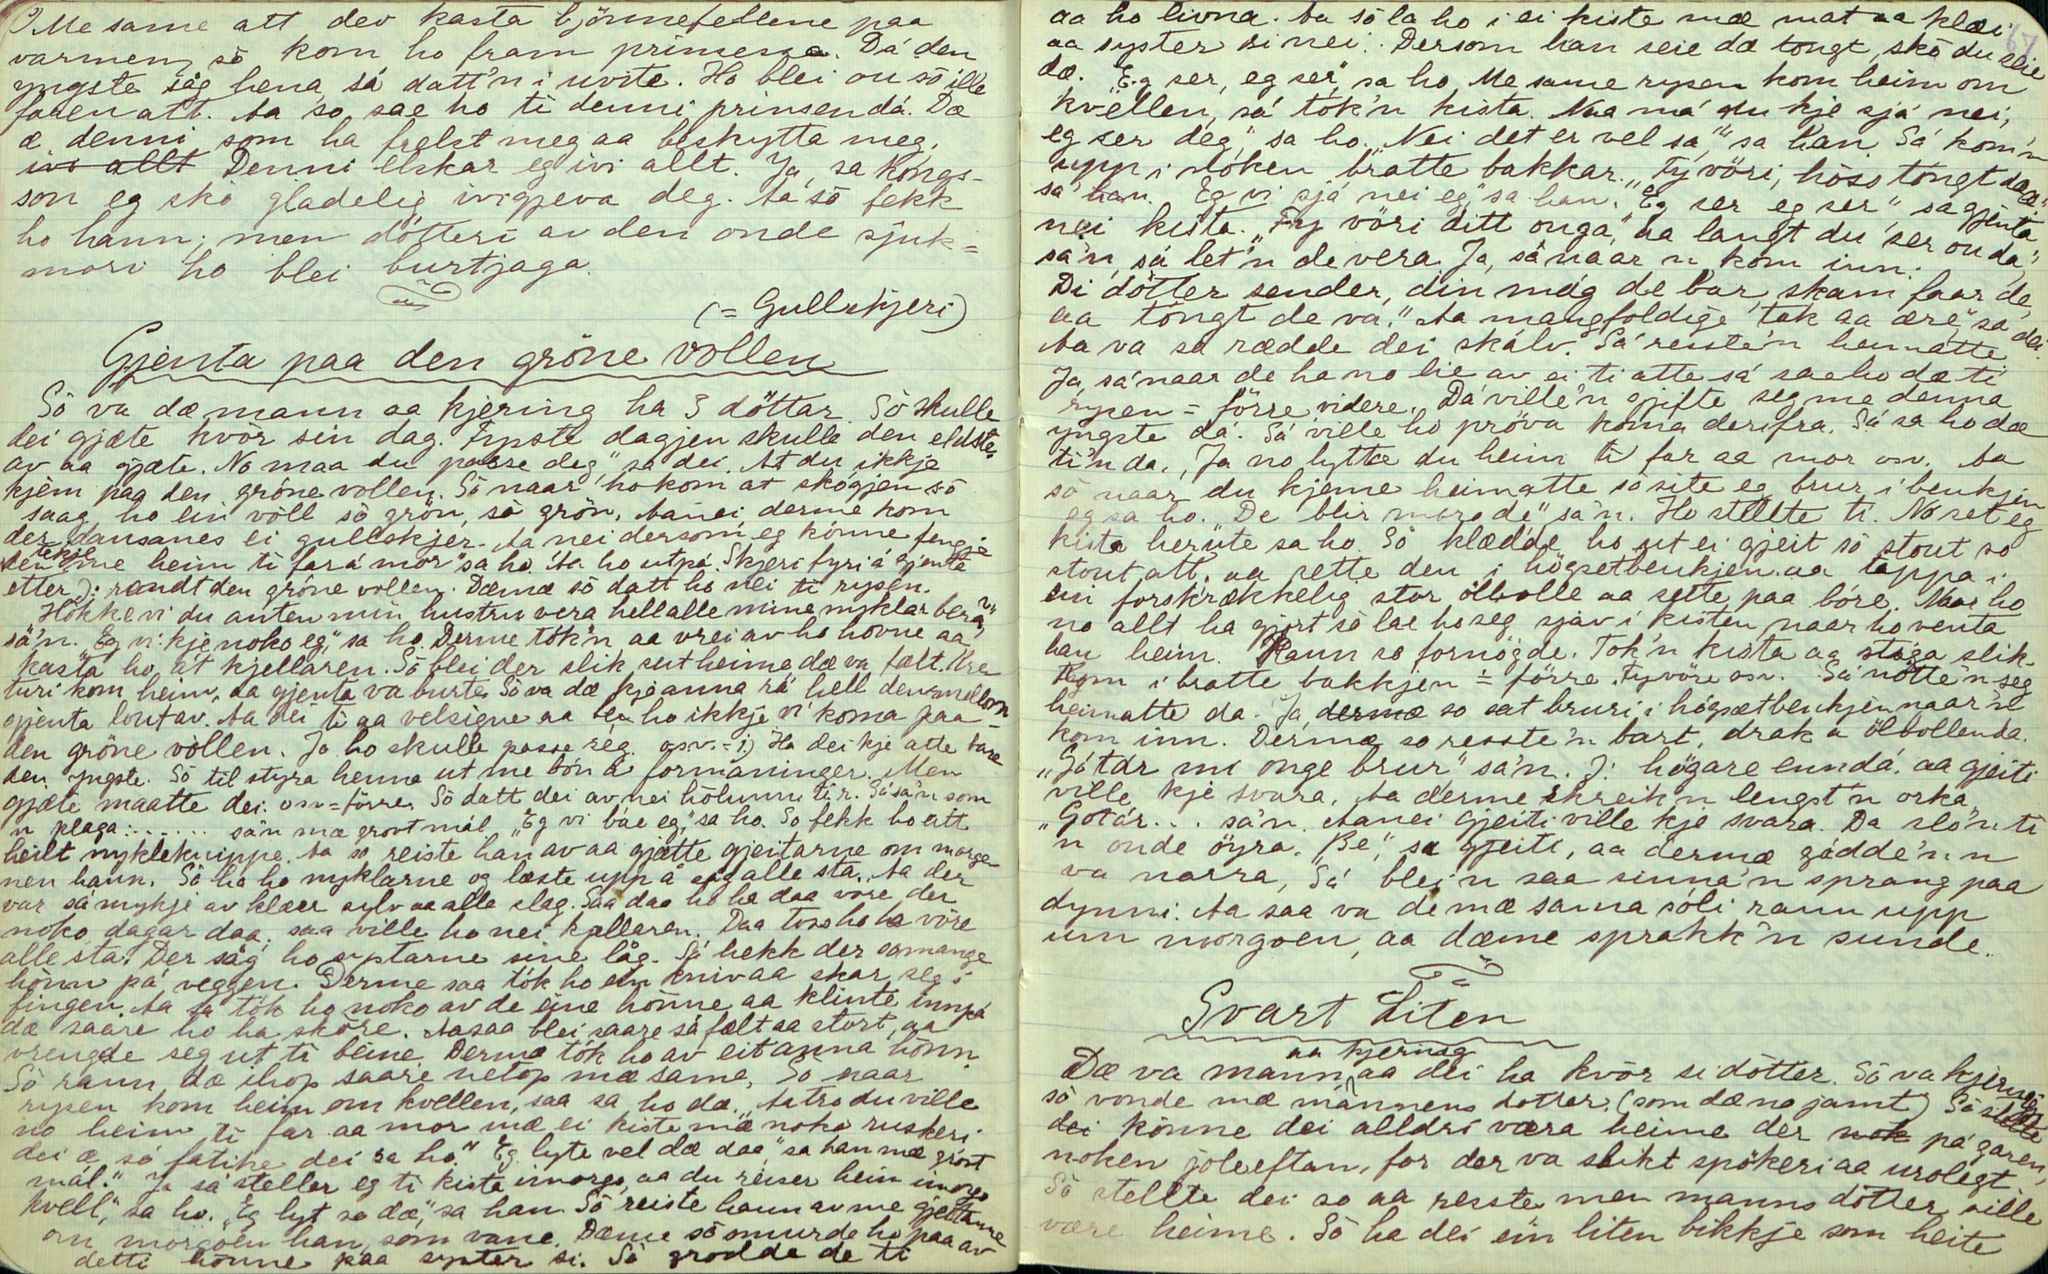 Me same att dev kasta bjönnefellene paa
varmen, sö kom ho fram prinsessa. Då den
yngste såg hena, så datt'n i uvite. Ho blei ou sö ille
faaen att. Aa so sae ho ti denni prinsen då. Dæ
æ denni som ha frelst meg aa beskytta meg.
ivi allt Denni elskar eg ivi allt. Ja, sa Kongs-
son eg skö gladelig ivigjeva deg. Aa sö fekk
ho hann; men dötteri av den onde sjuk=
mori ho blei burtjaga.
(= Gullskjeri)
Gjenta paa den gröne vollen
Sö va dæ mann aa kjering ha 3 döttar. Sö skulle
dei gjæte kvör sin dag. Fyste dagjen skulle den eldste
av aa gjæte. No maa du passe deg," sa dei. At du ikkje
kjem paa den gröne vollen. Sö naar ho kom at skogjen sö
saag ho ein völl sö grön, sö grön. Aa nei, derme kom
der dansanes ei gullskjer. Aa nei dersom eg könne fengje
den tekje me heim ti far å mor" sa ho. Aa ho utpå. Skjeri fyri å gjenta
etter ɔ: rundt den gröne vollen. Dæmæ sö datt ho nei ti rysen.
Hökke vi du anten min hustru vera hell alle mine nyklar bera?"
sa'n. "Eg vi kje noko eg," sa ho. Derme tok'n aa vrei av ho hovve aa
kasta ho ut kjellaren. Sö blei der slik sut heime dæ va fælt. Kre
turi kom heim, da gjenta va burte. Sö va dæ kje anna rå hell den mellom
gjenta lout av. Aa dei ti aa velsigne aa be ho ikkje vi koma paa
den gröne vollen. Jo ho skulle passe seg osv. = 1) Ha dei kje atte bare
den yngste. Sö til styra henne ut me bön å formaninger. Men
gjæte maatte dei. osv = förre. Sö datt dei av nei hölunn ti r. Så sa'n som
'n plaga: ...... sa'n mæ grovt mål "Eg vi bæe eg," sa ho. So fekk ho ett
heilt nykleknippe. Aa so reiste han av aa gjætte gjeitarne om morge
nen hann. Sö ha ho nyklarne og læste upp å såg alle sta. Aa der
var så mykje av klær sylv aa alle slag. Saa daa ho ha daa vore der
noko dagar daa, saa ville ho nei kjellaren. Daa torsho ha vöre
alle sta. Der såg ho systarne sine låg. Så hekk der so mange
hönn på veggen. Derme saa tok ho ein kniv aa skar seg i
fingen. Aa sa tök ho noko av de eine hönne aa klinte innpå
dæ saare ho ha skore. Aa saa blei saare så fælt aa stort, aa
vrengde seg ut ti beine. Dermæ tök ho av eit anna hönn.
Sö rann dæ ihop saare netop mæ same. So naar
rysen kom heim om kvellen, saa sa ho da. "Aa tro du ville
no heim ti far aa mor mæ ei kiste mæ noko ruskeri
dei æ só fatike dei sa ho." Eg lyte vel dæ daa" sa han mæ grovt
mål." Ja så steller eg ti kista imorgo, aa du reiser heim imorgo
kvell," sa ho. "Eg lyt so dæ," sa han. Sö reiste hann av me gjeitanne
om morgoen han, som vane. Dæme sö smurde ho paa av
detti hönne paa syster si. Sö grodde de ti
aa ho livna. Aa sö la ho i ei kiste mæ mat aa klæi
aa syster si nei. Dersom han seie dæ tongt, skö du seie
dæ. "Eg ser, eg ser", sa ho. Me same rysen kom heim om
kvellen, så tök'n kista. Naa må du kje sjå nei,
eg ser deg," sa ho. "Nei det er vel så," sa han. Så kom'n
upp i noken bratte bakkar. "Fy vöri, höss tongt dææ"
sa han. "Eg vi sjå nei eg," sa han. "Eg ser eg ser" sa gjenta
nei kista. "Fy vöri ditt onga, aa langt du ser ou da,"
sa'n, så let'n de vera. Ja, så naar'n kom inn.
Di dötter sender, din måg de bar, skam faar de
aa tongt de va." Aa mangfoldige tak aa ære," sa dei.
Aa va sa rædde dei skalv. Så reiste'n heimatte
Ja, så naar de ha no lie av ei ti atte så sae ho dæ ti
rysen = förre videre. Då ville'n gjifte seg me denna
yngste då. Så ville ho pröva koma derifra. Så sa ho dæ
ti'n da. "Ja no lytte du heim ti far aa mor osv. Aa
sö naar du kjeme heimatte so site eg brur i benkjen
eg sa ho. "De blir morode" sa'n. Ho stellte ti. No set eg
kista herute sa ho. Sö klædde ho ut ei gjeit sö stout so
stout att, aa sette den i högsetbenkjen aa tappa i
ein forskrækkelig stor ölbolle aa sette paa böre. Naar ho
no allt ha gjort sö lae ho seg sjav i kisten naar ho venta
han heim. Hann so fornögde. Tok'n kista aa staga slik.
Kom i bratte bakkjen = förre. Fy vöre osv. Så nötte'n seg
heimatte da. Ja, dermæ so sat bruri i högsætbenkjen naar'n
kom inn. Dermæ so resste'n bart, drak u ölbollen da.
"Götar mi onge brur" sa'n. ɔ: högare enndå, aa gjeiti
ville kje svara. Aa derme skreik'n lengst'n orka,
"Gotar... sa'n. Aa nei gjeiti ville kje svara. Da slo'n ti
'n onde öyra. "Be," sa gjeiti, aa dermæ gådde'n'n
va narra. Så blei'n saa sinna'n sprang paa
dynni. Aa saa va de mæ sama sóli rann upp
um morgoen, aa dæme sprakk'n sunde.
Svart Liten
aa kjering
Dæ va mann aa dei ha kvör si dötter. Sö va kjeringi
sö vonde mæ mannens dotter. (som dæ no jamt) Sö slette
dei könne dei alldri væra heime der nok på garen,
noken joleeftan, for der va slikt spökeri aa urolegt.
Sö stellte dei so aa resste men manns dötter ville
være heime. Sö ha dei ein liten bikkje som heite